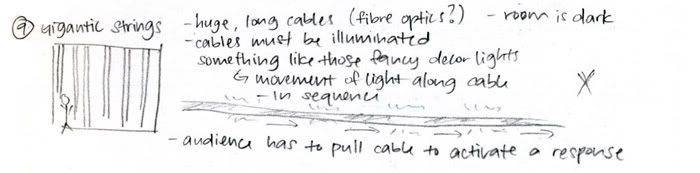 ⑨ Gigantic strings
- huge, long cables (fibre optics?) - room is dark
- cables must be illuminated
something like those fancy decor lights
↳ movement of light along cable
- in sequence
X
- audience has to pull cable to activate a response